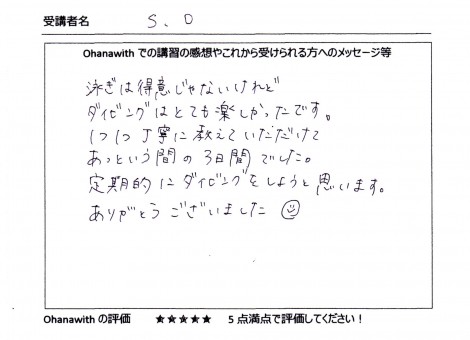 受講者名 S、O
Ohanawith での講習の感想やこれから受けられる方へのメッセージ等
泳ぎは得意じゃないけれど
ダイビングはとても楽しかったです。
1つ1つ丁寧に教えていただだけて
あっという間の3日間でした。
定期的にダイビングをしようと思います。
ありがとうございました
Ohanawith の評価 ★★★★★ 5 点満点で評価してください！